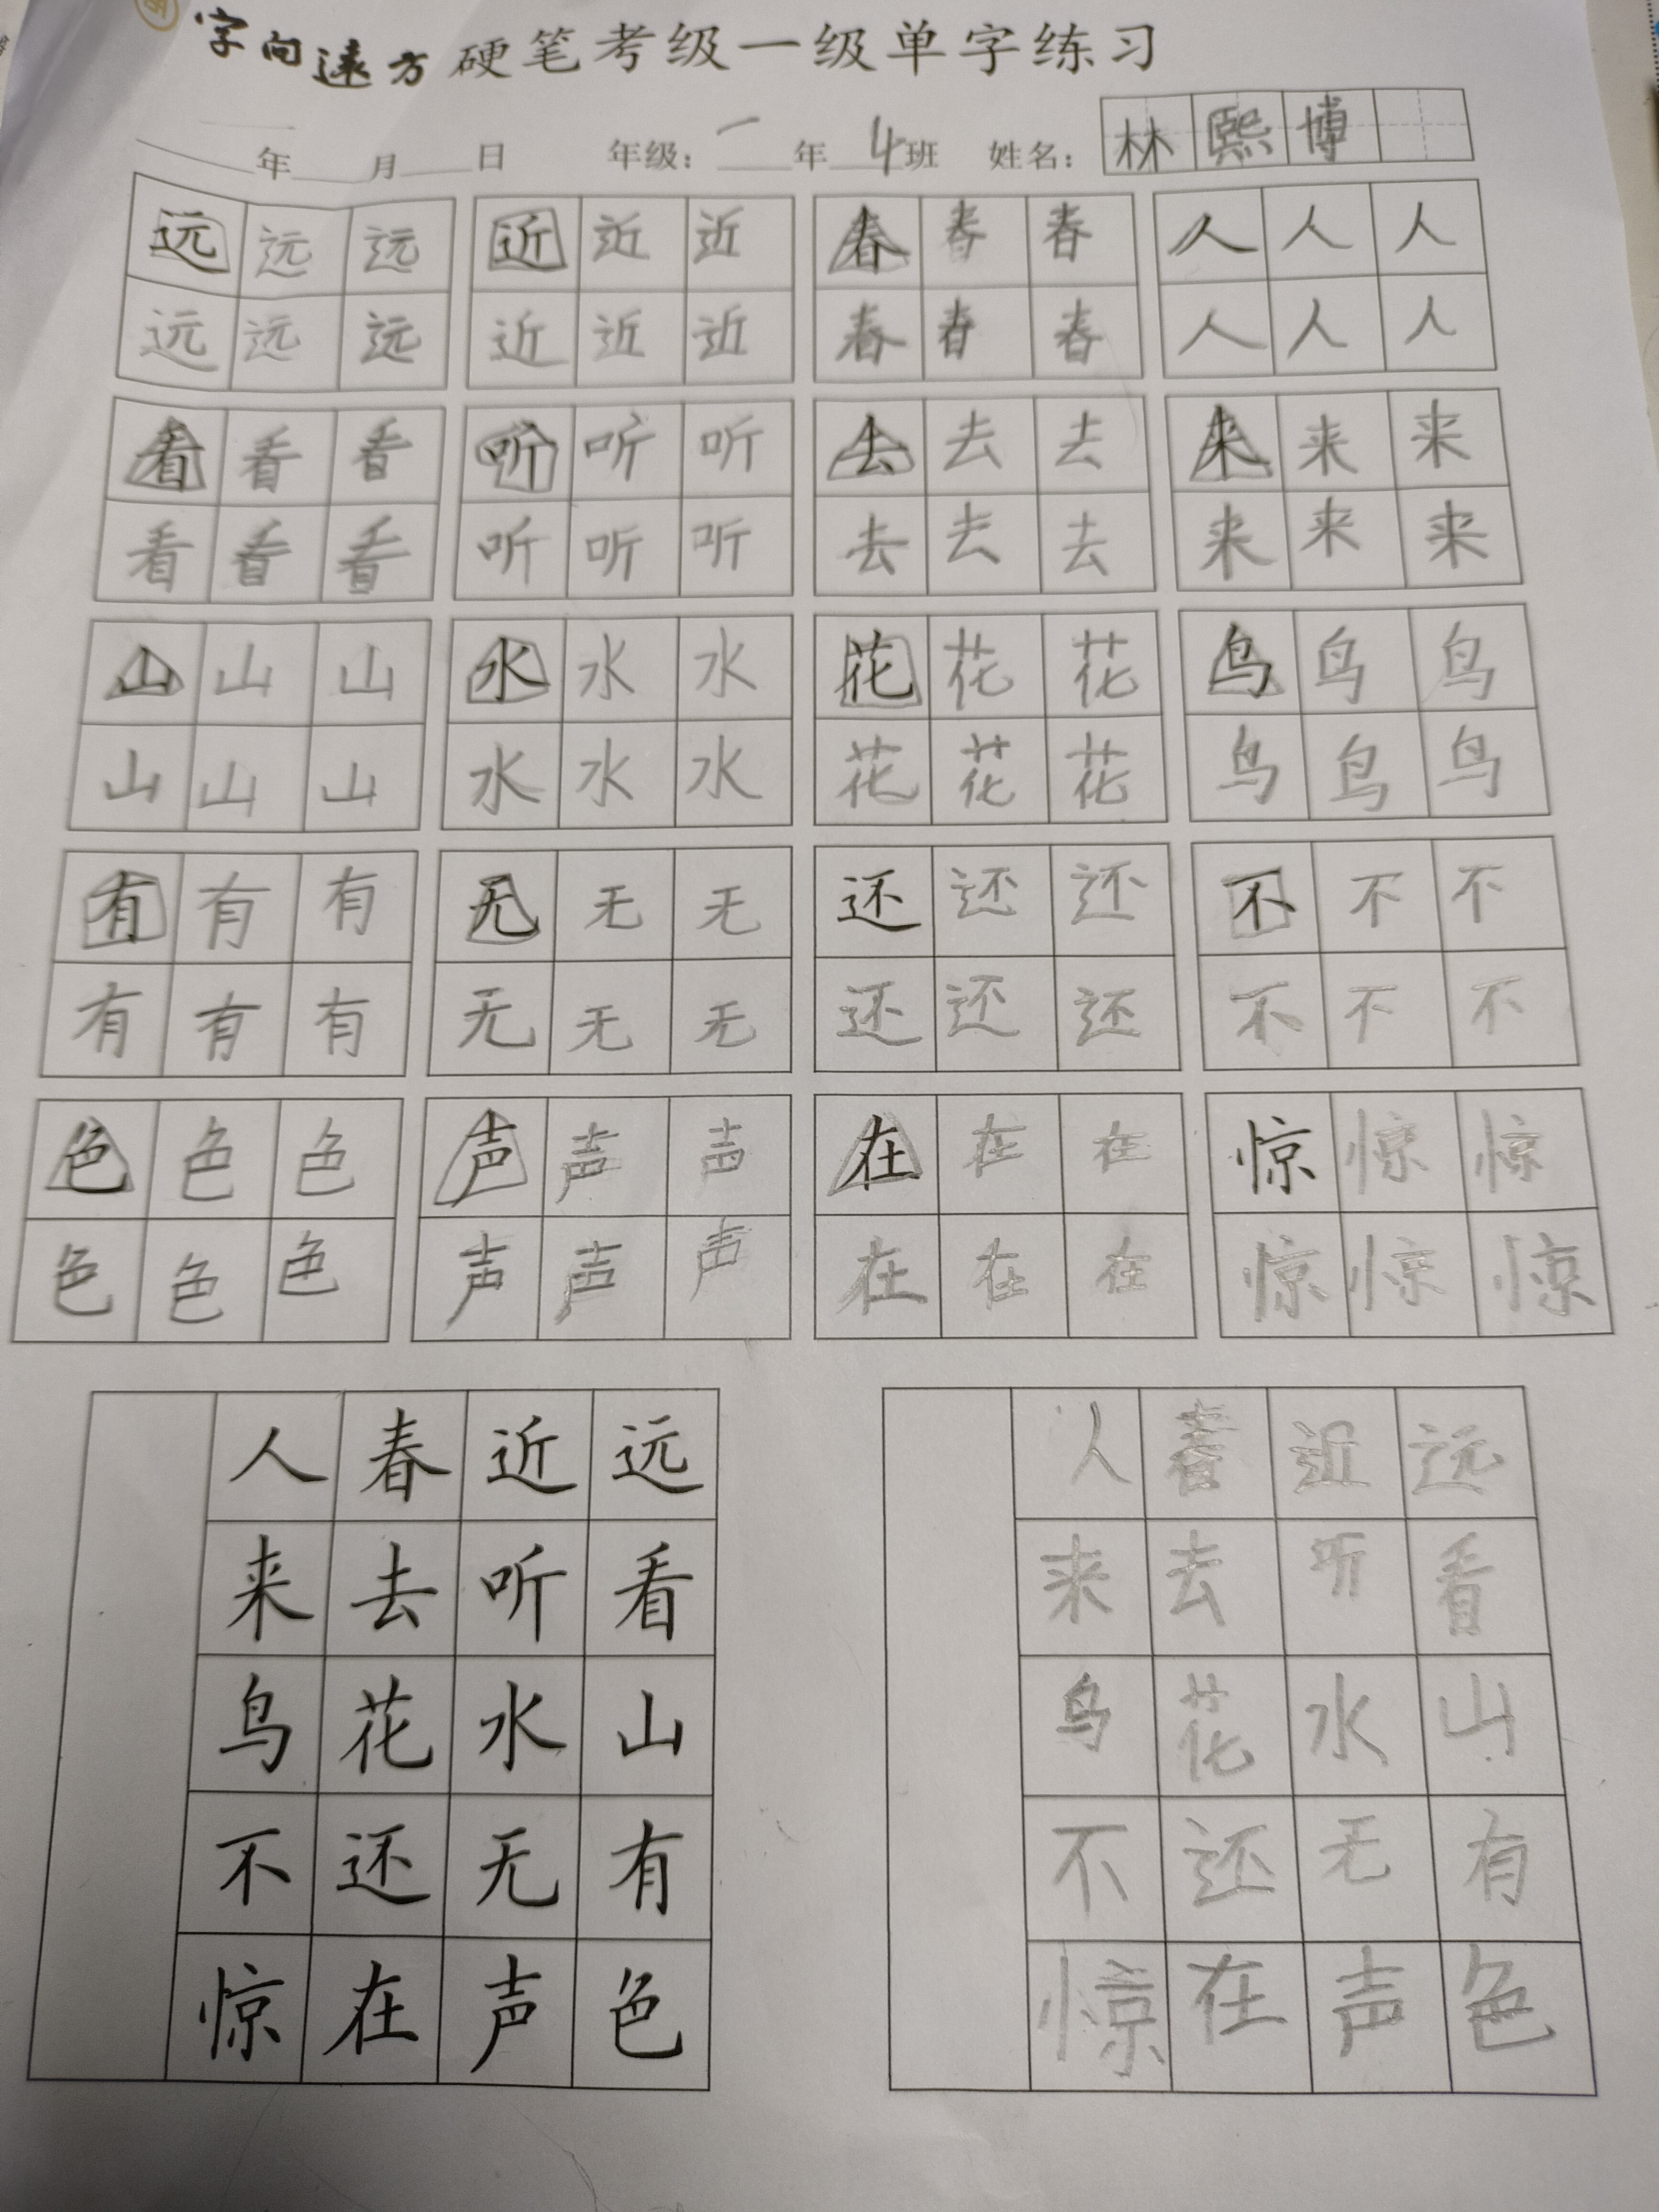 字向遠方硬笔考级一级单字练习
年 月 日 年级：一年4班 姓名：林熙博
远远远 近近近 春春春 人人人
远远远 近近近 春春春 人人人
看看看 听听听 去去去 来来来
看看看 听听听 去去去 来来来
山山山 水水水 花花花 鸟鸟鸟
山山山 水水水 花花花 鸟鸟鸟
有有有 无无无 还还还 不不不
有有有 无无无 还还还 不不不
色色色 声声声 在在在 惊惊惊
色色色 声声声 在在在 惊惊惊
远看山有色
近听水无声
春去花还在
人来鸟不惊
远看山有色
近听水无声
春去花还在
人来鸟不惊